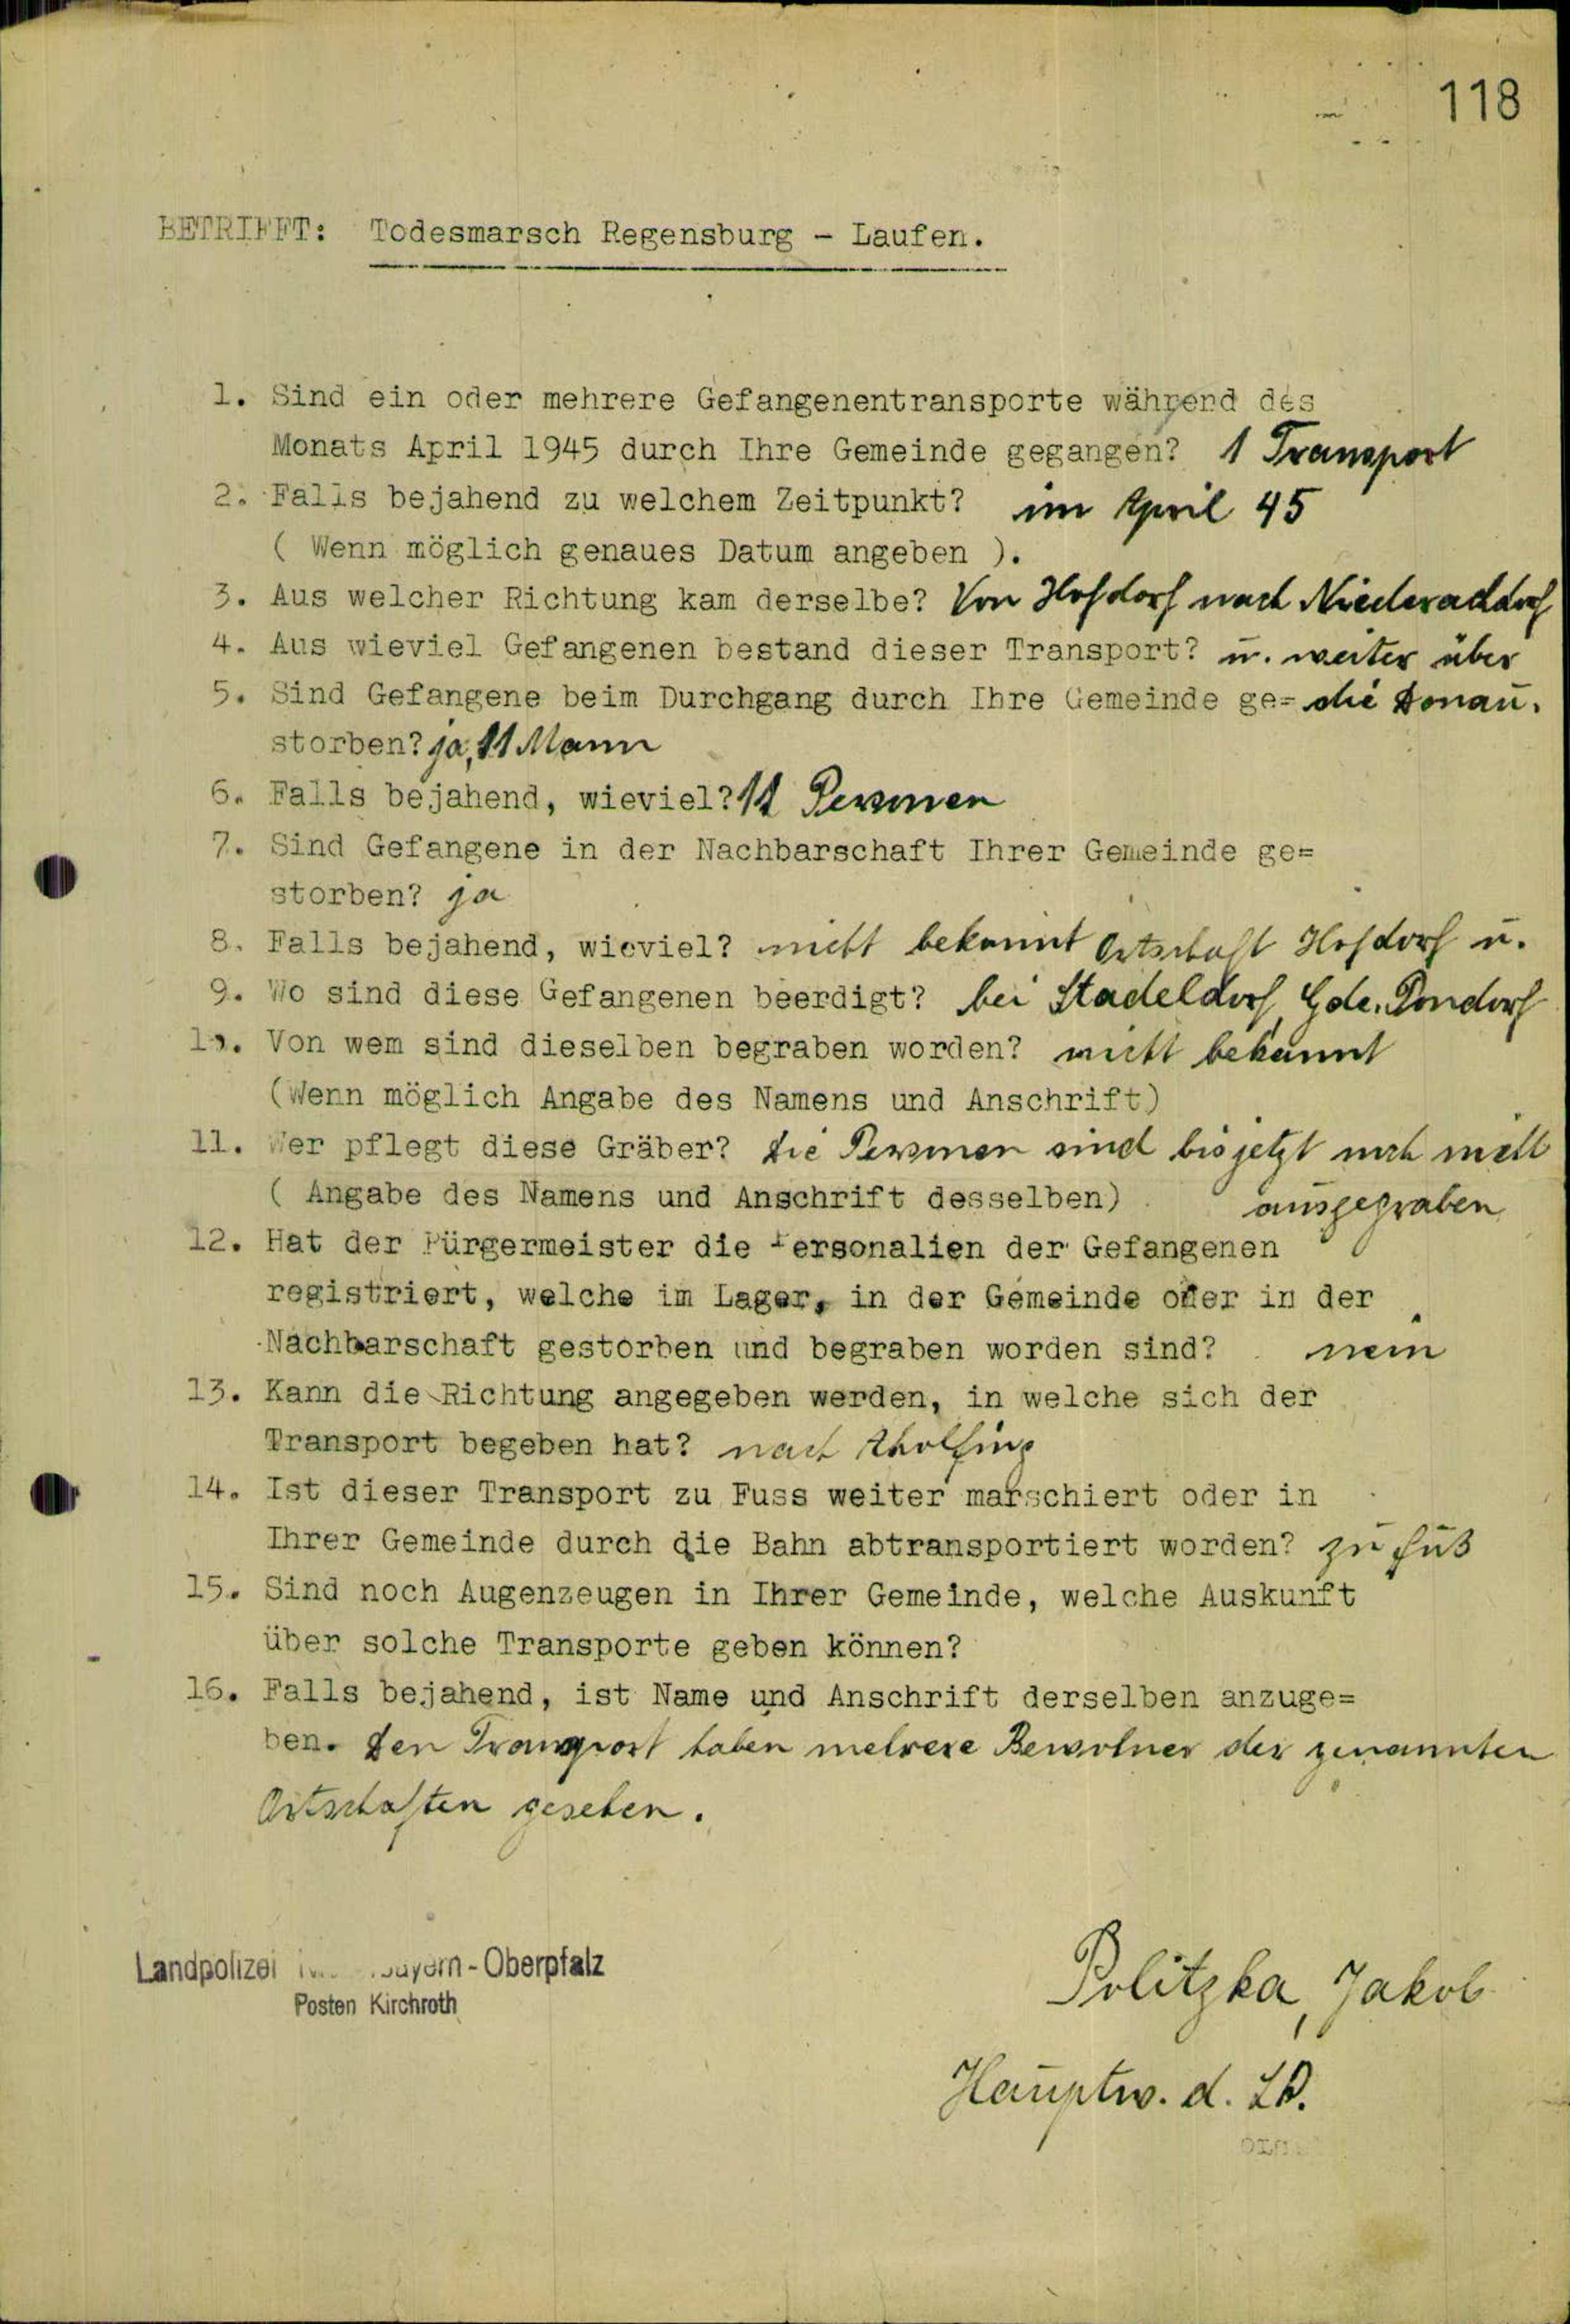 118
BETRIFFT: Todesmarsch Regensburg - Laufen.
1. Sind ein oder mehrere Gefangenentransporte während des
Monats April 1945 durch Ihre Gemeinde gegangen? 1 Transport
2. Falls bejahend zu welchem Zeitpunkt? im April 45
( Wenn möglich genaues Datum angeben ).
3. Aus welcher Richtung kam derselbe? Von Hofdorf nach Niederachdorf
4. Aus wieviel Gefangenen bestand dieser Transport? u. weiter über
5. Sind Gefangene beim Durchgang durch Ihre Gemeinde ge= die Donau.
storben? ja, 11 Mann
6. Falls bejahend, wieviel? 11 Personen
7. Sind Gefangene in der Nachbarschaft Ihrer Gemeinde ge=
storben? ja
8. Falls bejahend, wieviel? nicht bekannt Ortschaft Hofdorf u.
9. Wo sind diese Gefangenen beerdigt? bei Stadeldorf, Gde. Pondorf
10. Von wem sind dieselben begraben worden? nicht bekannt
(Wenn möglich Angabe des Namens und Anschrift)
11. Wer pflegt diese Gräber? Die Personen sind bis jetzt noch nicht
( Angabe des Namens und Anschrift desselben) ausgegraben
12. Hat der Bürgermeister die Personalien der Gefangenen
registriert, welche im Lager, in der Gemeinde oder in der
Nachbarschaft gestorben und begraben worden sind? nein
13. Kann die Richtung angegeben werden, in welche sich der
Transport begeben hat? nach Aholfing
14. Ist dieser Transport zu Fuss weiter marschiert oder in
Ihrer Gemeinde durch die Bahn abtransportiert worden? zu Fuß
15. Sind noch Augenzeugen in Ihrer Gemeinde, welche Auskunft
über solche Transporte geben können?
16. Falls bejahend, ist Name und Anschrift derselben anzuge=
ben. Den Transport haben mehrere Bewohner der genannten
Ortschaften gesehen.
Landpolizei Niederbayern-Oberpfalz
Posten Kirchroth
Politzka, Jakob
Hauptw. d. LP.